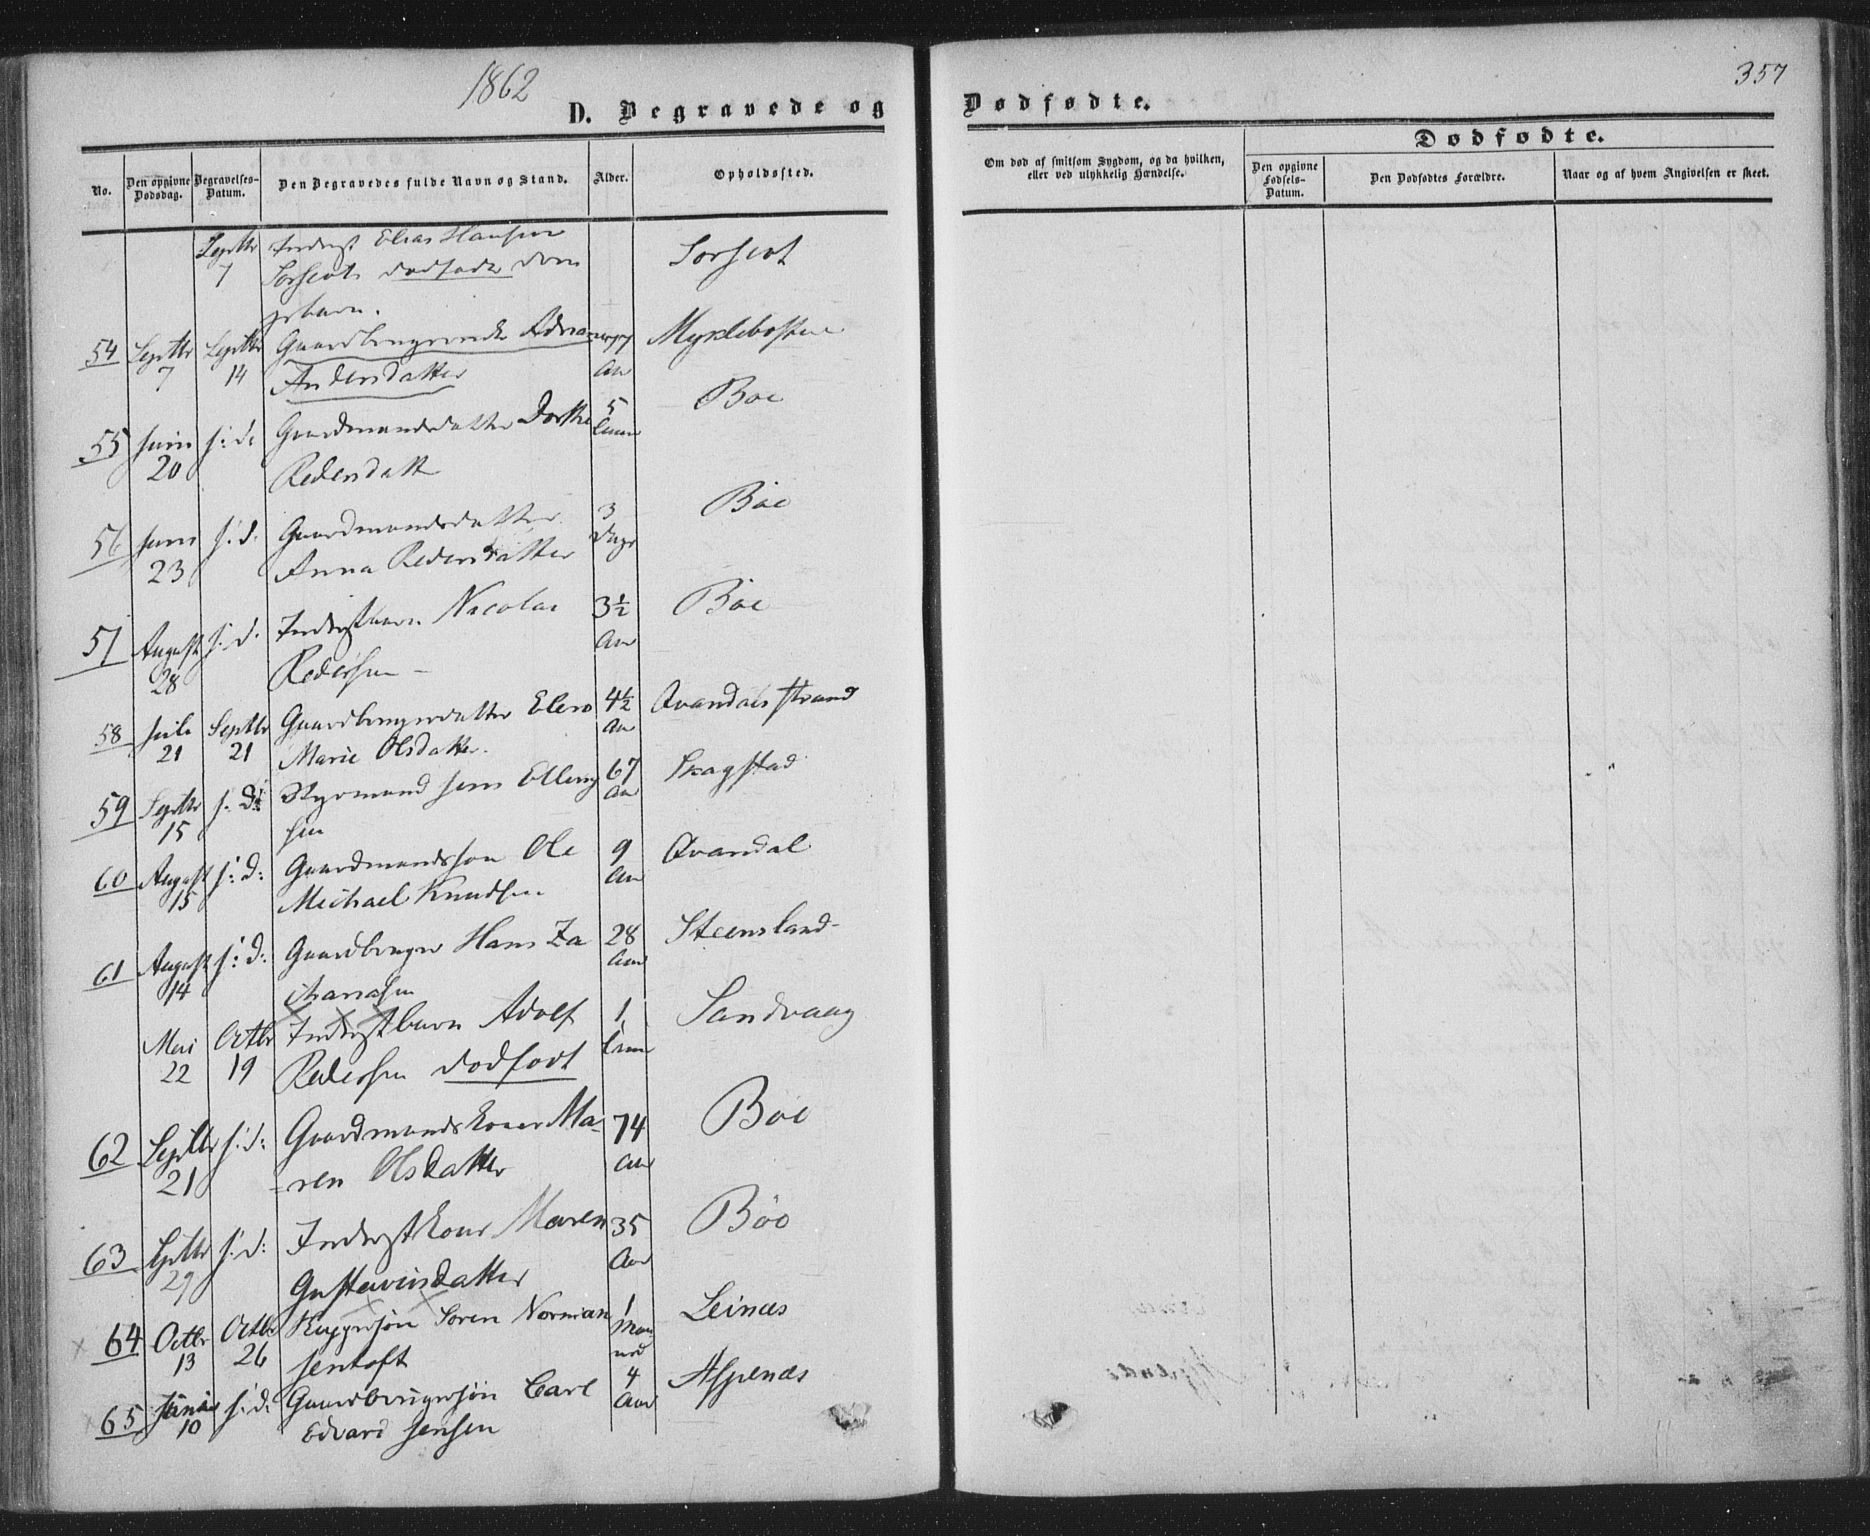 1862
357
D. Begravede og
Dødfødte.
No.
Den opgivne Dødsdag.
Begravelses-Datum.
Den Begravedes fulde Navn og Stand.
Alder.
Opholdssted.
Om død af smitsom Sygdom, og da hvilken, eller ved ulykkelig Hændelse.
Dødfødte.
Den opgivne Fødsels-Datum.
Den Dødfødtes Forældre.
Naar og af hvem Angivelsen er skeet.
Septbr 7 Inderst Elias Hansen
dødfødte
54 Septbr 7 Septbr 14 Gaardbrugerenke
Andersdatter 77 Aar
55 20 s: d: Gaardmandsdatter Dorthe 5 Bøe
Pedersdatt
56 23 s: d. Gaardmandsdatter 3 Dage Bøe
Anna Pedersdatter
57 August 28 s: d. Inderstbarn Nicolai 3½ Aar Bøe
Pedersen
58 Juli 21 Septbr 21 Gaardbrugerdatter 4½ Aar Qvandalsstrand
Marie Olsdatter.
59 Septbr 15 s: d: Styrmand Jens Elling 67 Aar Skagstad
sen
60 August 15 s: d: Gaardmandssøn Ole 9 Aar Qvandal
Michael Knudsen
61 August 14 s: d: Gaardbruger Hans Za 28 Aar Steensland
chariasen
Mai 22 Octbr 19 Inderstbarn Adolf 1 Sandvaag
Pedersen dødfødt
62 Septbr 21 s: d: Gaardmandskone Ma- 74 Aar Bøe
-ren Olsdatter
63 Septbr 29 s: d: Inderstkone Maren 35 Aar Bøe
Gustavusdatter
64 Octbr 13 Octbr 26 Søren Norman 1 Maaned Leinæs
Jentoft
65 10 s: d. Gaardbrugersøn Carl 4 Aar Aspenæs
Edvard Jensen